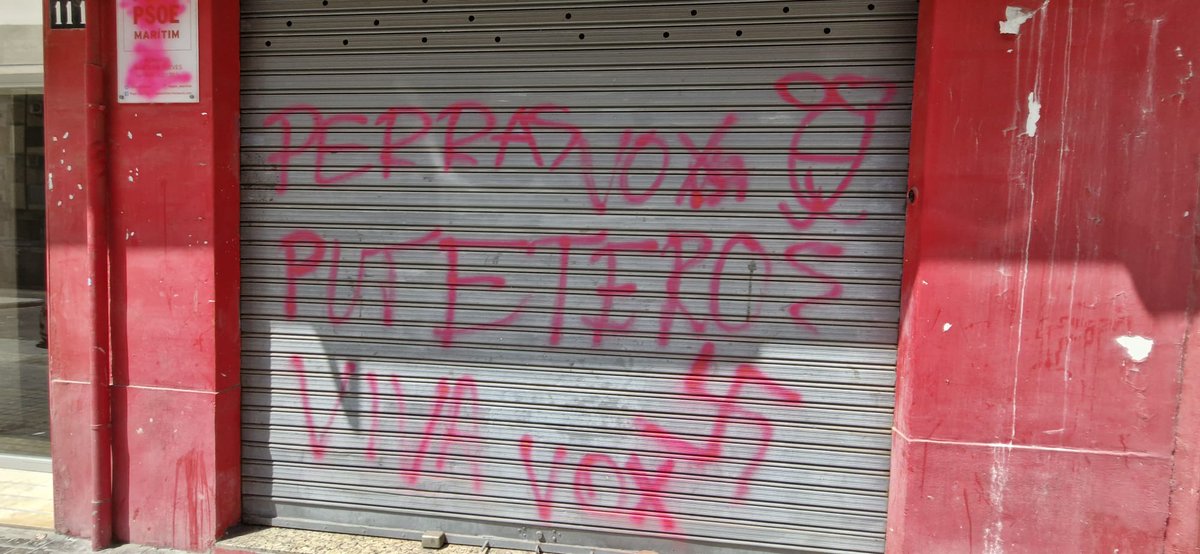 111
PSOE
MARÍTIM
PERRAS VOX
PUTETEROS
VIVA
VOX